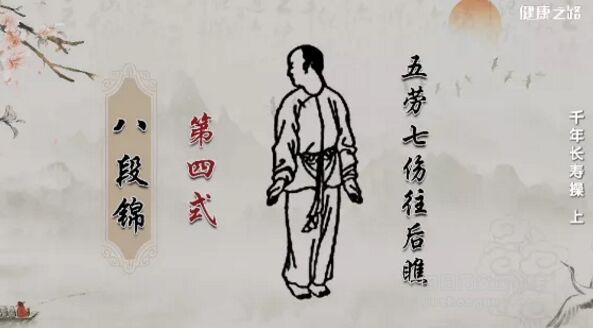 健康之路
千年长寿操 上
五劳七伤往后瞧
第四式
八段锦